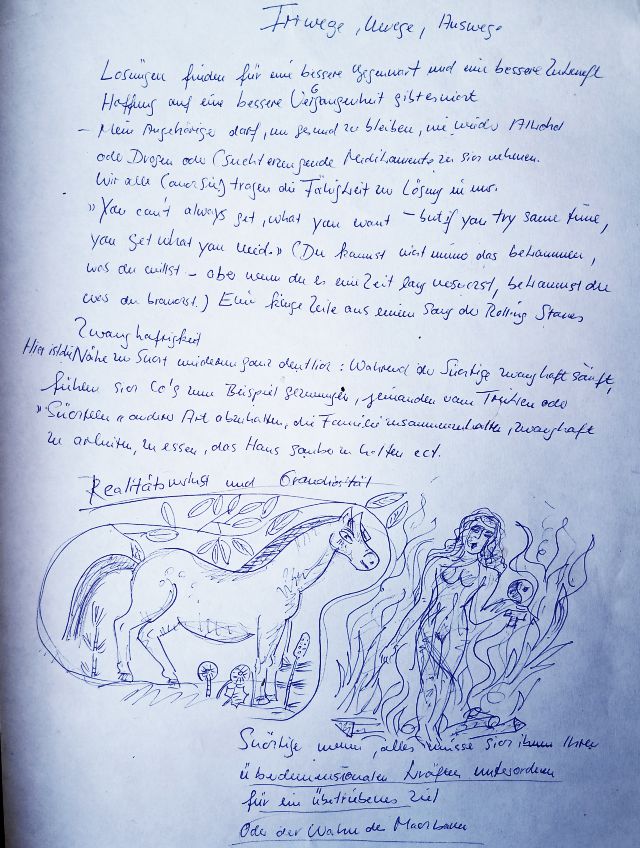 Irrwege, Umwege, Auswege
Lösungen finden für eine bessere Gegenwart und eine bessere Zukunft
Hoffnung auf eine bessere Vergangenheit gibt es nicht
– Mein Angehöriger darf, um gesund zu bleiben, nie wieder Alkohol
oder Drogen oder (suchterzeugende Medikamente zu sich nehmen.
Wir alle tragen die Fähigkeit zur Lösung in uns.
"You can't always get, what you want – but if you try some time,
you get what you need." (Du kannst nicht immer das bekommen,
was du willst – aber wenn du es eine Zeit lang versuchst, bekommst du
was du brauchst.) Eine Zeile aus einem Song der Rolling Stones
Zwanghaftigkeit
Hier ist die Nähe zur Sucht wiederum ganz deutlich: Während der Süchtige zwanghaft säuft,
fühlen sich Co's zum Beispiel gezwungen, jemanden vom Trinken oder
"Süchteln" anderer Art abzuhalten, die Familie zusammenzuhalten, zwanghaft
zu arbeiten, zu essen, das Haus sauber zu halten ect.
Realitätsverlust und Grandiosität
Süchtige meinen, alles müsse sich ihnen Ihren
überdimensionalen Kräften unterordnen
für ein übertriebenes Ziel
Oder der Wahn der Machbaren